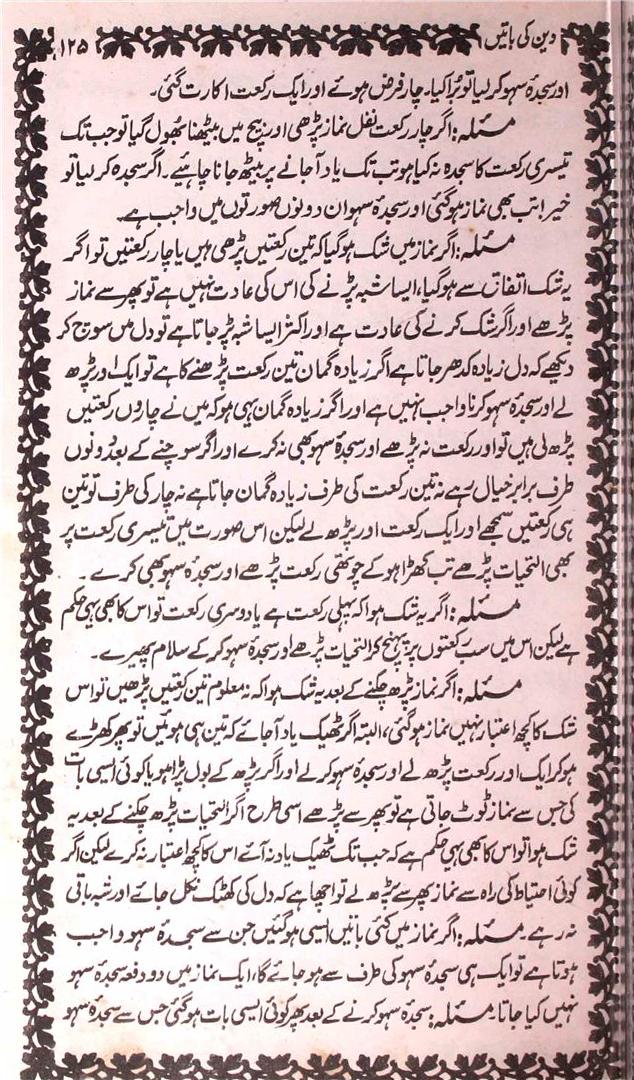 دین کی باتیں ۱۲۵
اور سجدۂ سہو کر لیا تو بُرا کیا۔ چار فرض ہوئے اور ایک رکعت اکارت گئی۔
مسئلہ: اگر چار رکعت نفل نماز پڑھی اور بیچ میں بیٹھنا بھول گیا تو جب تک
تیسری رکعت کا سجدہ نہ کیا ہو تب تک یاد آجانے پر بیٹھ جانا چاہیے۔ اگر سجدہ کر لیا تو
خیر! تب بھی نماز ہو گئی اور سجدۂ سہو ان دونوں صورتوں میں واجب ہے۔
مسئلہ: اگر نماز میں شک ہو گیا کہ تین رکعتیں پڑھی ہیں یا چار رکعتیں تو اگر
یہ شک اتفاق سے ہو گیا، ایسا شبہ پڑنے کی اس کی عادت نہیں ہے تو پھر سے نماز
پڑھے اور اگر شک کرنے کی عادت ہے اور اکثر ایسا شبہ پڑ جاتا ہے تو دل میں سوچ کر
دیکھے کہ دل زیادہ کدھر جاتا ہے اگر زیادہ گمان تین رکعت پڑھنے کا ہے تو ایک اور پڑھ
لے اور سجدۂ سہو کرنا واجب نہیں ہے اور اگر زیادہ گمان یہی ہو کہ میں نے چاروں رکعتیں
پڑھ لی ہیں تو اور رکعت نہ پڑھے اور سجدۂ سہو بھی نہ کرے اور اگر سوچنے کے بعد دونوں
طرف برابر خیال رہے نہ تین رکعت کی طرف زیادہ گمان جاتا ہے نہ چار کی طرف تو تین
ہی رکعتیں سمجھے اور ایک رکعت اور پڑھ لے لیکن اس صورت میں تیسری رکعت پر
بھی التحیات پڑھے تب کھڑا ہو کے چوتھی رکعت پڑھے اور سجدۂ سہو بھی کرے۔
مسئلہ: اگر یہ شک ہوا کہ پہلی رکعت ہے یا دوسری رکعت تو اس کا بھی یہی حکم
ہے لیکن اس میں سب رکعتوں پر پہنچ کر التحیات پڑھے اور سجدۂ سہو کر کے سلام پھیرے۔
مسئلہ: اگر نماز پڑھ چکنے کے بعد یہ شک ہوا کہ نہ معلوم تین رکعتیں پڑھیں تو اس
شک کا کچھ اعتبار نہیں نماز ہو گئی، البتہ اگر ٹھیک یاد آجائے کہ تین ہی ہوئیں تو پھر کھڑے
ہو کر ایک اور رکعت پڑھ لے اور سجدۂ سہو کر لے اور اگر پڑھ کے بول پڑا ہو یا کوئی ایسی بات
کی جس سے نماز ٹوٹ جاتی ہے تو پھر سے پڑھے اسی طرح اگر التحیات پڑھ چکنے کے بعد یہ
شک ہوا تو اس کا بھی یہی حکم ہے کہ جب تک ٹھیک یاد نہ آئے اس کا کچھ اعتبار نہ کرے لیکن اگر
کوئی احتیاط کی راہ سے نماز پھر سے پڑھ لے تو اچھا ہے کہ دل کی کھٹک نکل جائے اور شبہ باقی
نہ رہے۔ مسئلہ: اگر نماز میں کئی باتیں ایسی ہو گئیں جن سے سجدۂ سہو واجب
ہوتا ہے تو ایک ہی سجدۂ سہو کی طرف سے ہو جائے گا، ایک نماز میں دو دفعہ سجدۂ سہو
نہیں کیا جاتا۔ مسئلہ: سجدۂ سہو کرنے کے بعد پھر کوئی ایسی بات ہو گئی جس سے سجدۂ سہو